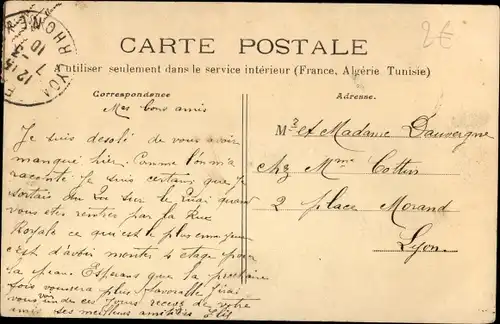 2€
CARTE POSTALE
A utiliser seulement dans le service intérieur (France, Algérie Tunisie)
Correspondance
Adresse.
RHONE
Mes bons amis
Je suis desolé de vous avoir
manqué hier. Comme l'on m'a
raconté. Je suis certain que je
sortais du sur le Quai quand
vous êtes rentrés par la Rue
Royale ce qui est le plus
c'est d'avoir monter 4 etage pour
la peau Esperons que la prochaine
fois vous sera plus favorable J'irai
vous voir un de ces Jours recevez de votre
ami ses meilleurs amitiés
Mr et Madame Dauvergne
chz Mme Cottin
2 place Morand
Lyon.